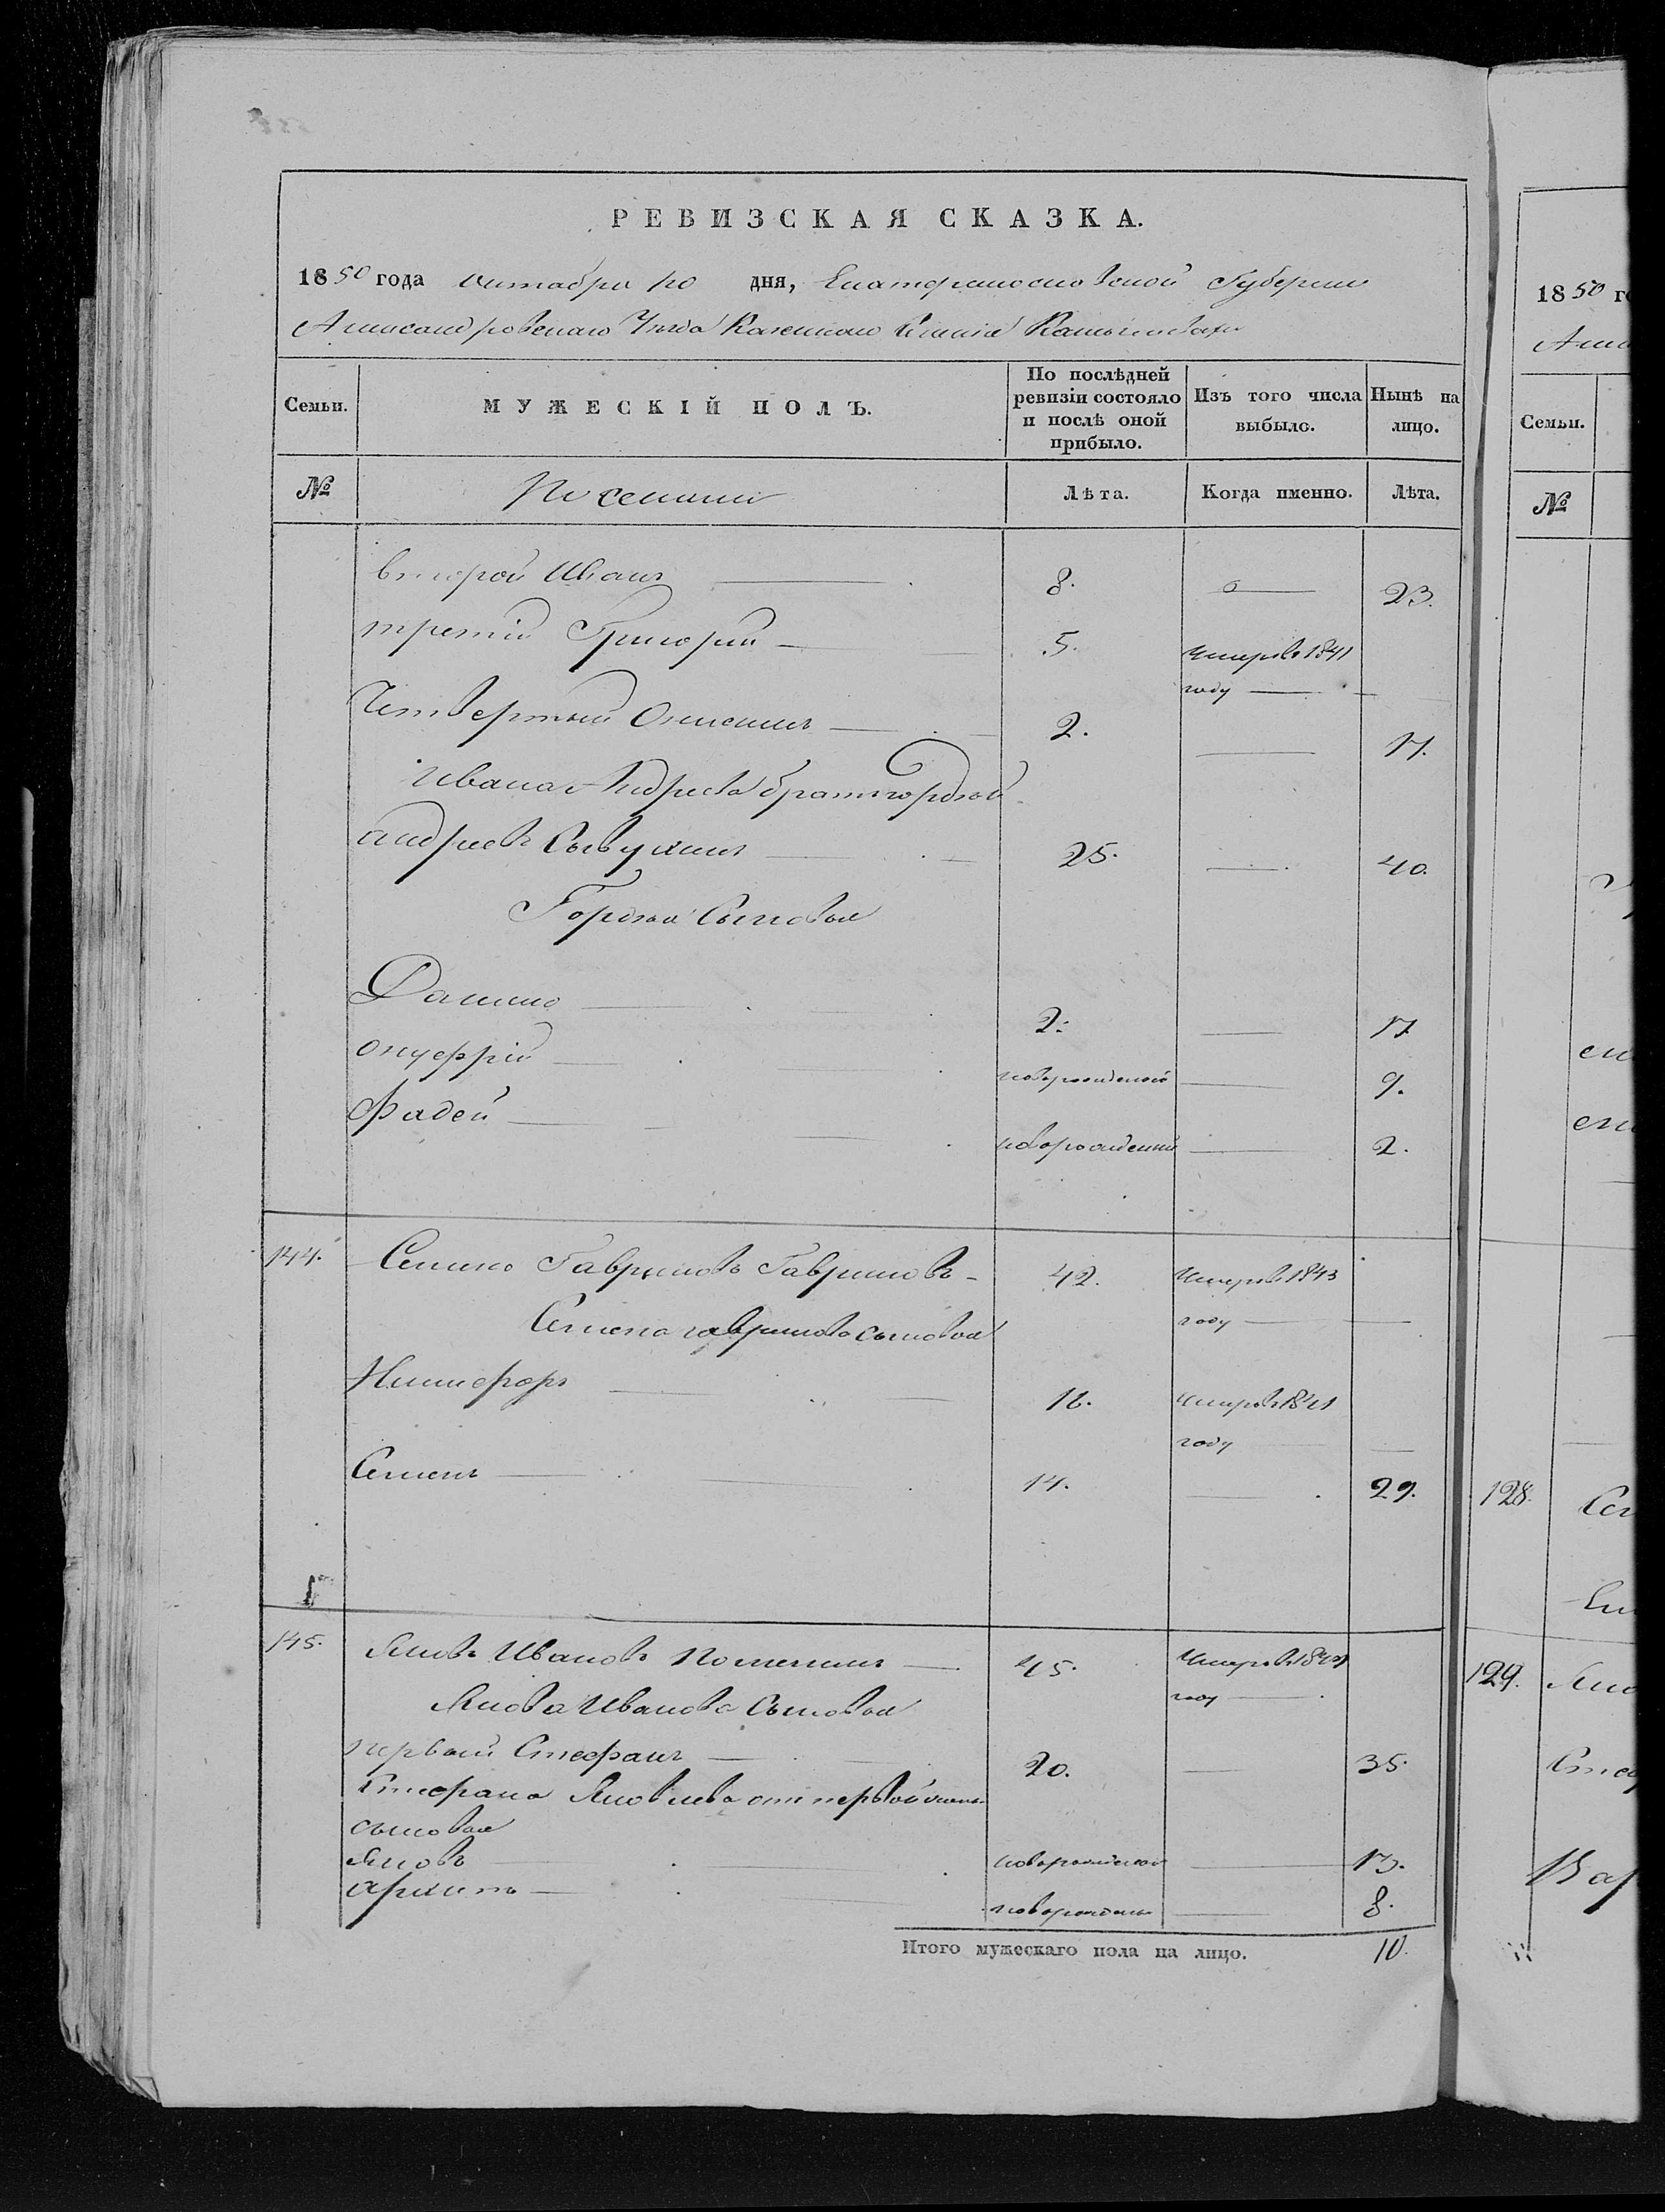 РЕВИЗСКАЯ СКАЗКА.
1850 года октября 10 дня, Екатеринославской Губернии
Александровскаго Уезда Казеннаго Селенія
Семьи. МУЖЕСКІЙ ПОЛЪ. По послѣдней ревизіи состояло и послѣ оной прибыло. Изъ того числа выбыло. Нынѣ на лицо.
№ Лѣта. Когда именно. Лѣта.
второй Иванъ 8. 23.
третій Григорій 5. Умеръ въ 1841
году
Четвертый 2. 17.
Ивана Андреева братъ Гордѣй
Андреевъ 25. 40.
Гордѣя Сыновья
Данило 2. 17
Онуфрій новорожденой 9.
Фадей новорожденый 2.
144. Семенъ Гавриловъ Гавриловъ 42. Умеръ въ 1843
году
Семена Гаврилова сыновья
Никифоръ 16. Умеръ въ 1841
году
Семенъ 14. 29.
145. Яковъ Ивановъ 45. Умеръ въ
году
Якова Иванова Сыновья
первый Стефанъ 20. 35.
Стефана Яковлева отъ первой жены
сыновья
Яковъ новорожденой 13.
Архипъ новорожденый 8.
Итого мужескаго пола на лицо. 10.
1850
Семьи.
№
128.
129.